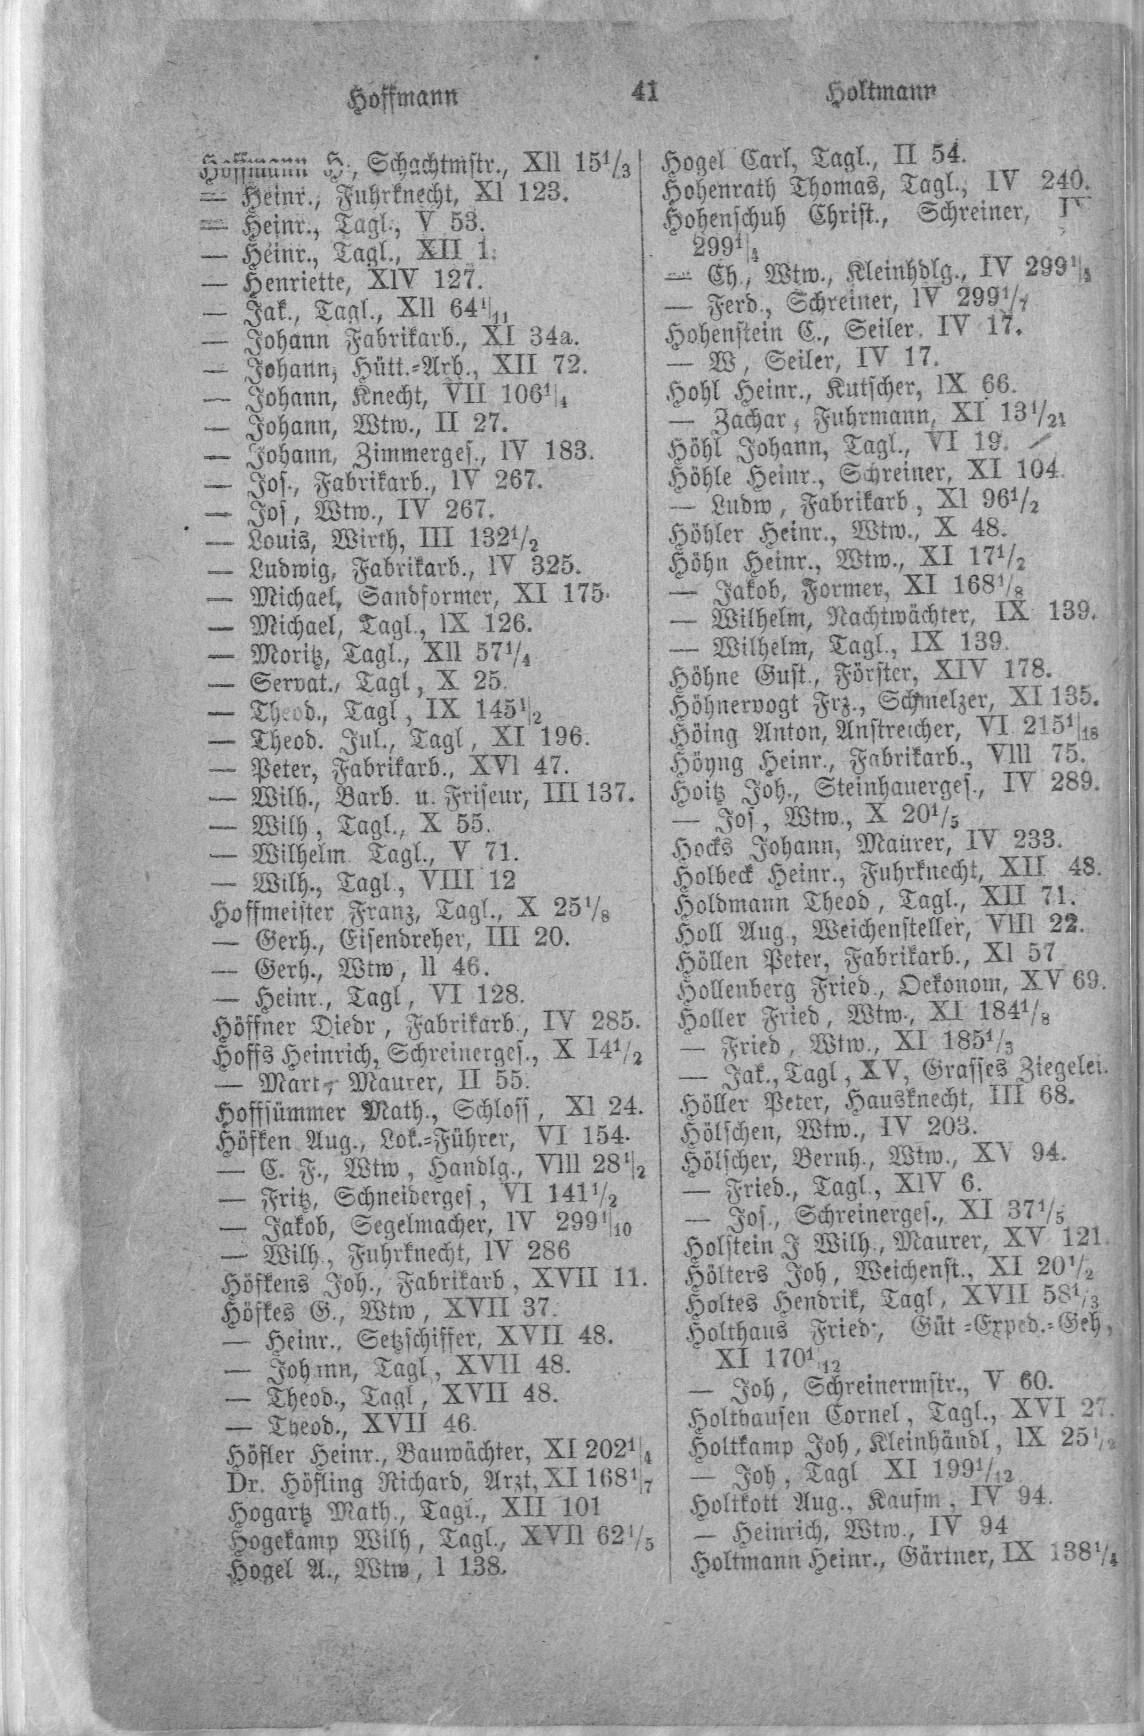 Hoffmann 41 Holtmann
Hoffmann H., Schachtmstr., XII 15 1/3
— Heinr., Fuhrknecht, XI 123.
— Heinr., Tagl., V 53.
— Heinr., Tagl., XII 1.
— Henriette, XIV 127.
— Jak., Tagl., XII 64 1/11
— Johann Fabrikarb., XI 34a.
— Johann, Hütt.-Arb., XII 72.
— Johann, Knecht, VII 106 1/4
— Johann, Wtw., II 27.
— Johann, Zimmerges., IV 183.
— Jos., Fabrikarb., IV 267.
— Jos, Wtw., IV 267.
— Louis, Wirth, III 132 1/2
— Ludwig, Fabrikarb., IV 325.
— Michael, Sandformer, XI 175.
— Michael, Tagl., IX 126.
— Moritz, Tagl., XII 57 1/4
— Servat., Tagl, X 25.
— Theod., Tagl, IX 145 1/2
— Theod. Jul., Tagl, XI 196.
— Peter, Fabrikarb., XVI 47.
— Wilh., Barb. u. Friseur, III 137.
— Wilh, Tagl., X 55.
— Wilhelm Tagl., V 71.
— Wilh., Tagl, VIII 12
Hoffmeister Franz, Tagl., X 25 1/8
— Gerh., Eisendreher, III 20.
— Gerh., Wtw, II 46.
— Heinr., Tagl, VI 128.
Höffner Diedr, Fabrikarb., IV 285.
Hoffs Heinrich, Schreinerges., X 14 1/2
— Mart, Maurer, II 55.
Hoffsümmer Math., Schloss, XI 24.
Höfken Aug., Lok.-Führer, VI 154.
— C. F., Wtw, Handlg., VIII 28 1/2
— Fritz, Schneiderges, VI 141 1/2
— Jakob, Segelmacher, IV 299 1/10
— Wilh, Fuhrknecht, IV 286
Höfkens Joh., Fabrikarb, XVII 11.
Höfkes G., Wtw, XVII 37.
— Heinr., Setzschiffer, XVII 48.
— Johann, Tagl, XVII 48.
— Theod., Tagl, XVII 48.
— Theod., XVII 46.
Höfler Heinr., Bauwächter, XI 202 1/4
Dr. Höfling Richard, Arzt, XI 168 1/7
Hogartz Math., Tagl., XII 101
Hogekamp Wilh, Tagl., XVII 62 1/5
Hogel A., Wtw, I 138.
Hogel Carl, Tagl., II 54.
Hohenrath Thomas, Tagl., IV 240.
Hohenschuh Christ., Schreiner, IV
299 1/4
— Ch., Wtw., Kleinhdlg., IV 299 1/4
— Ferd., Schreiner, IV 299 1/4
Hohenstein C., Seiler, IV 17.
— W, Seiler, IV 17.
Hohl Heinr., Kutscher, IX 66.
— Zachar, Fuhrmann, XI 13 1/21
Höhl Johann, Tagl., VI 19.
Höhle Heinr., Schreiner, XI 104.
— Ludw, Fabrikarb, XI 96 1/2
Höhler Heinr., Wtw., X 48.
Höhn Heinr., Wtw., XI 17 1/2
— Jakob, Former, XI 168 1/8
— Wilhelm, Nachtwächter, IX 139.
— Wilhelm, Tagl., IX 139.
Höhne Gust., Förster, XIV 178.
Höhnervogt Frz., Schmelzer, XI 135.
Höing Anton, Anstreicher, VI 215 1/18
Höyng Heinr., Fabrikarb., VIII 75.
Hoitz Joh., Steinhauerges., IV 289.
— Jos, Wtw., X 20 1/5
Hocks Johann, Maurer, IV 233.
Holbeck Heinr., Fuhrknecht, XII 48.
Holdmann Theod, Tagl., XII 71.
Holl Aug, Weichensteller, VIII 22.
Höllen Peter, Fabrikarb., XI 57
Hollenberg Fried., Oekonom, XV 69.
Holler Fried, Wtw., XI 184 1/8
— Fried, Wtw., XI 185 1/3
— Jak., Tagl, XV, Grasses Ziegelei.
Höller Peter, Hausknecht, III 68.
Hölschen, Wtw., IV 203.
Hölscher, Bernh., Wtw., XV 94.
— Fried., Tagl., XIV 6.
— Jos., Schreinerges., XI 37 1/5
Holstein J Wilh., Maurer, XV 121.
Hölters Joh, Weichenst., XI 20 1/2
Holtes Hendrik, Tagl, XVII 58 1/3
Holthaus Fried., Güt-Exped.-Geh,
XI 170 1/12
— Joh, Schreinermstr., V 60.
Holthausen Cornel, Tagl., XVI 27.
Holtkamp Joh, Kleinhändl, IX 25 1/2
— Joh, Tagl XI 199 1/12
Holtkott Aug., Kaufm, IV 94.
— Heinrich, Wtw., IV 94
Holtmann Heinr., Gärtner, IX 138 1/4